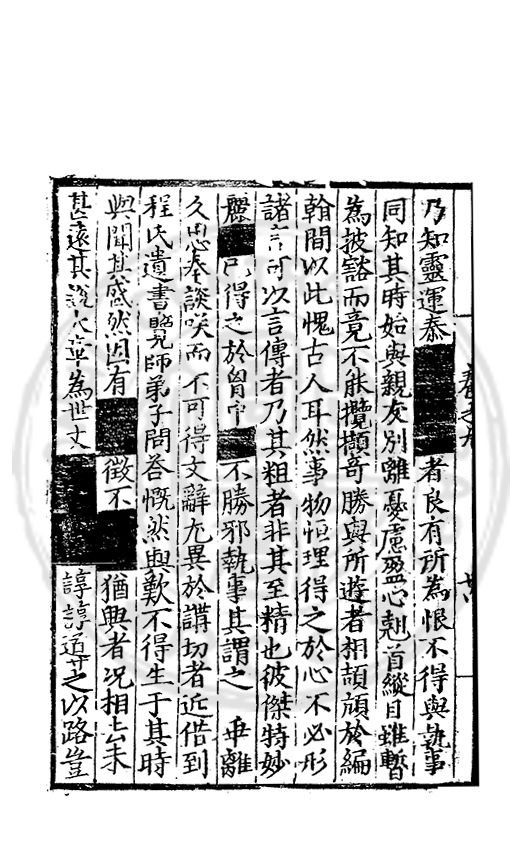 乃知靈運忝者良有所為恨不得與執事
同知其時始與親友別離憂慮盈心剋首縱目雖暫
為披豁而竟不能攬擷奇勝與所遊者相頡頏於編
翰間以此愧古人耳然事物恒理得之於心不必形
諸言可以言傳者乃其粗者非其至精也彼傑特妙
麗已得之於胷中不勝邪執事其謂之 乖離
久思奉談咲而不可得文辭尤異於講切者近借到
程氏遺書覽師弟子問荅慨然興歎不得生于其時
與聞其盛然因有徵不猶興者况相去未
甚遠其說大章為世丈諄諄道之以路豈
卷之九